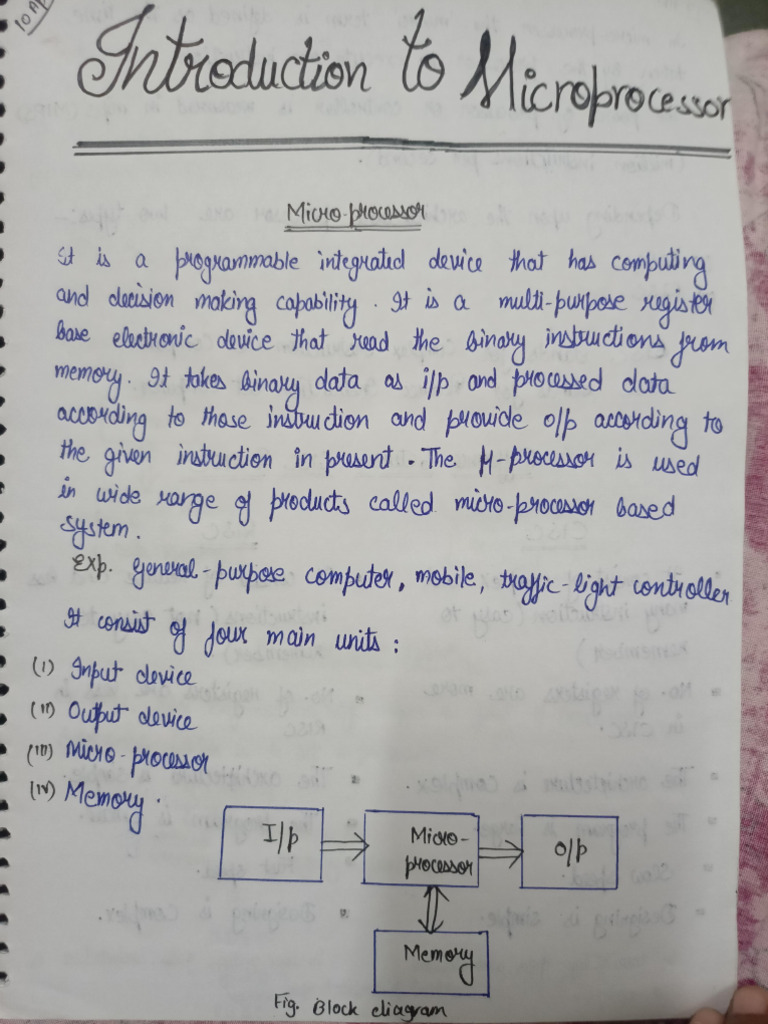 10 Ap
Introduction to Microprocessor
Micro-processor
It is a programmable integrated device that has computing
and decision making capability. It is a multi-purpose register
base electronic device that read the binary instructions from
memory. It takes binary data as i/p and processed data
according to those instruction and provide o/p according to
the given instruction in present. The μ-processor is used
in wide range of products called micro-processor based
system.
Exp. General-purpose computer, mobile, traffic-light controller
It consist of four main units :
(I) Input device
(II) Output device
(III) Micro-processor
(IV) Memory.
I/p
Micro-
processor
O/p
Memory
Fig. Block diagram